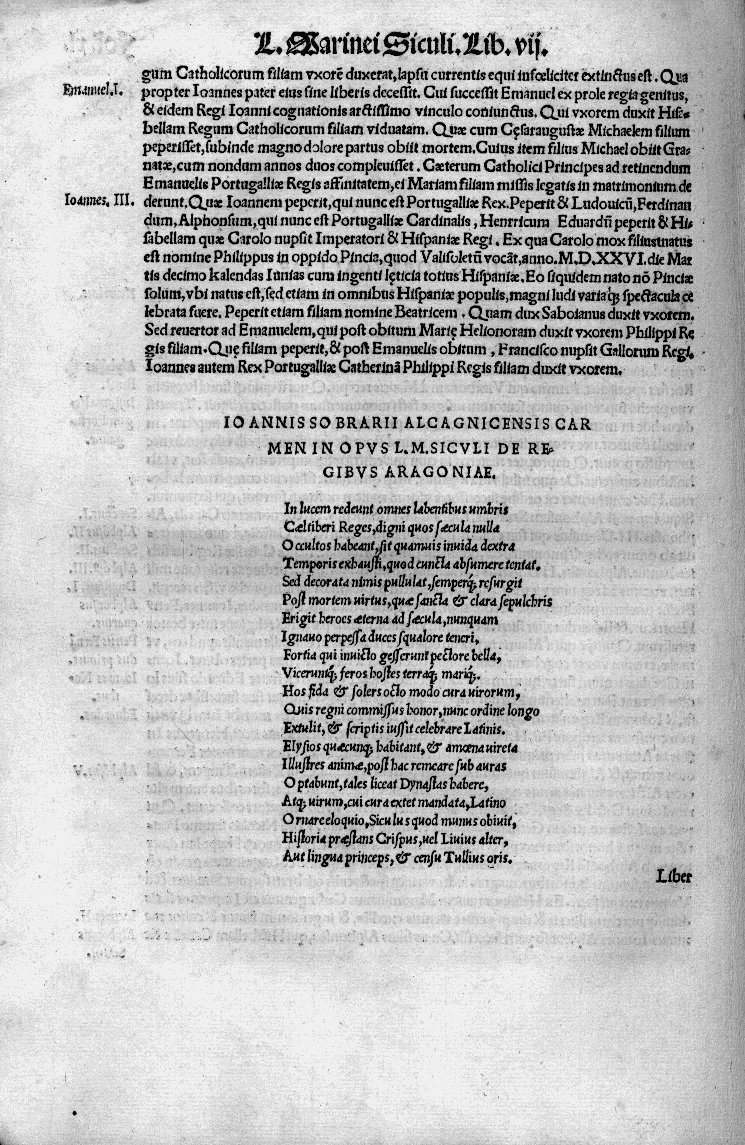 L. Marinei Siculi. Lib. vij.
gum Catholicorum filiam vxorẽ duxerat, lapsu currentis equi infœliciter extinctus est. Qua
Emanuel. I.
propter Ioannes pater eius sine liberis decessit. Cui successit Emanuel ex prole regia genitus,
& eidem Regi Ioanni cognationis arctissimo vinculo coniunctus. Qui vxorem duxit Hisa-
bellam Regum Catholicorum filiam viduatam. Quæ cum Cęsaraugustæ Michaelem filium
peperisset, subinde magno dolore partus obiit mortem. Cuius item filius Michael obiit Gra-
natæ, cum nondum annos duos compleuisset. Cæterum Catholici Principes ad retinendum
Emanuelis Portugalliæ Regis affinitatem, ei Mariam filiam missis legatis in matrimonium de
Ioannes. III.
derunt. Quæ Ioannem peperit, qui nunc est Portugalliæ Rex. Peperit & Ludouicũ, Ferdinan
dum, Alphonsum, qui nunc est Portugalliæ Cardinalis, Henrricum Eduardũ peperit & Hi-
sabellam quæ Carolo nupsit Imperatori & Hispaniæ Regi. Ex qua Carolo mox filius natus
est nomine Philippus in oppido Pincia, quod Valisoletũ vocãt, anno. M.D.XXVI. die Mar
tis decimo kalendas Iunias cum ingenti lęticia totius Hispaniæ. Eo siquidem nato nõ Pinciæ
solum, vbi natus est, sed etiam in omnibus Hispaniæ populis, magni ludi variaq; spectacula ce
lebrata fuere. Peperit etiam filiam nomine Beatricem. Quam dux Saboianus duxit vxorem.
Sed reuertor ad Emanuelem, qui post obitum Marię Helionoram duxit vxorem Philippi Re
gis filiam. Quę filiam peperit, & post Emanuelis obitum, Francisco nupsit Gallorum Regi.
Ioannes autem Rex Portugalliæ Catherinã Philippi Regis filiam duxit vxorem.
IOANNIS SOBRARII ALCAGNICENSIS CAR
MEN IN OPVS L. M. SICVLI DE RE-
GIBVS ARAGONIAE.
In lucem redeunt omnes labentibus umbris
Cæltiberi Reges, digni quos sæcula nulla
Occultos habeant, sit quamuis inuida dextra
Temporis exhausti, quod cuncta absumere tentat.
Sed decorata nimis pullulat, semperq; resurgit
Post mortem uirtus, quæ sancta & clara sepulchris
Erigit heroes æterna ad sæcula, nunquam
Ignauo perpessa duces squalore teneri,
Fortia qui inuicto gesserunt pectore bella,
Viceruntq; feros hostes terraq; mariq;.
Hos fida & solers octo modo cura uirorum,
Quis regni commissus honor, nunc ordine longo
Extulit, & scriptis iussit celebrare Latinis.
Elysios quæcunq; habitant, & amœna uireta
Illustres animæ, post hac remeare sub auras
Optabunt, tales liceat Dynastas habere,
Atq; uirum, cui cura extet mandata, Latino
Ornare eloquio, Siculus quod munus obiuit,
Historia præstans Crispus, uel Liuius alter,
Aut lingua princeps, & censu Tullius oris.
Liber